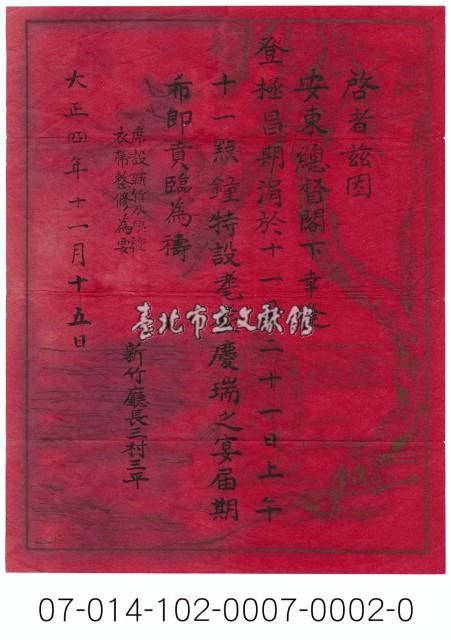 啓者茲因
安東總督閣下幸逢
登極昌期涓於十一月二十一日上午
十一點鐘特設耄慶瑞之宴届期
希即賁臨為禱
席設新竹公學校
衣帶整修為要
大正四年十一月十五日
新竹廳長三村三平
臺北市立文獻館
07-014-102-0007-0002-0